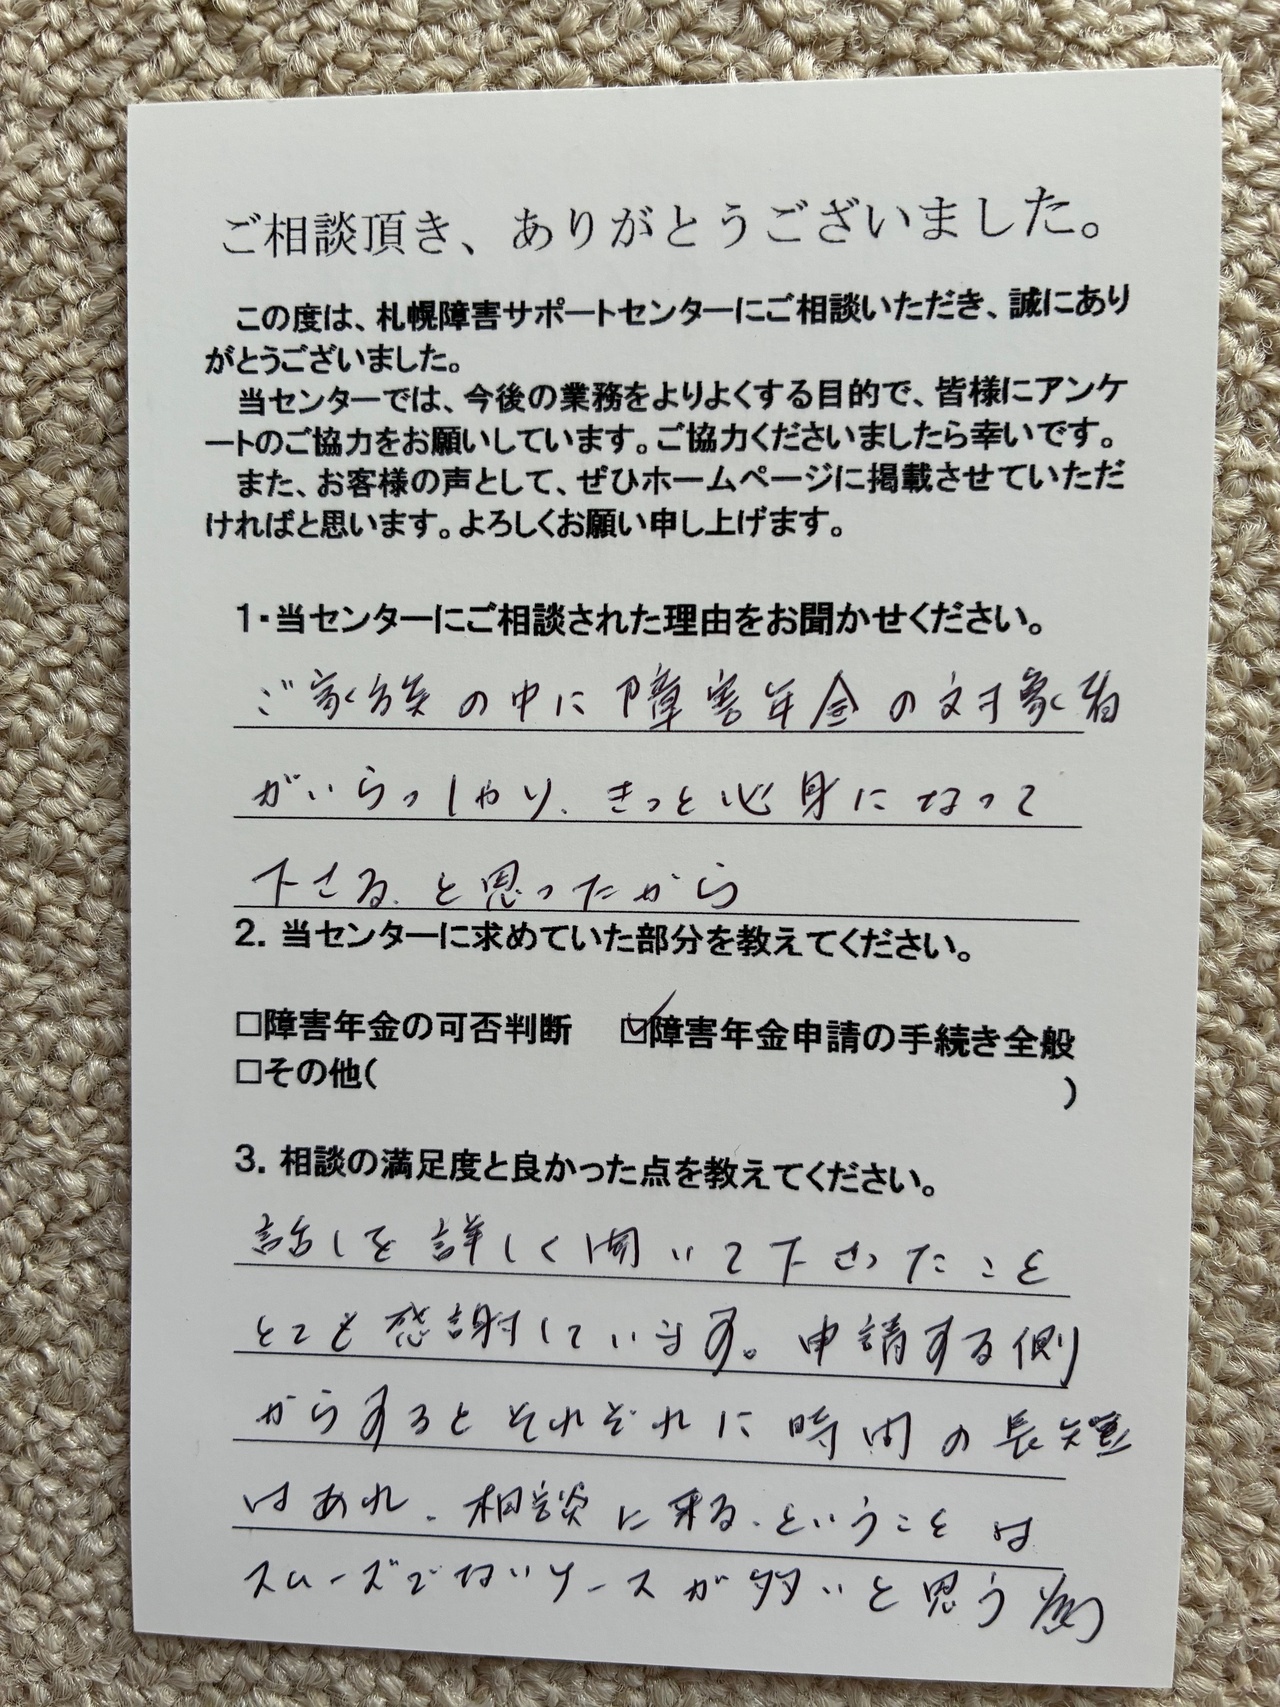 ご相談頂き、ありがとうございました。
この度は、札幌障害サポートセンターにご相談いただき、誠にあり
がとうございました。
当センターでは、今後の業務をよりよくする目的で、皆様にアンケ
ートのご協力をお願いしています。ご協力くださいましたら幸いです。
また、お客様の声として、ぜひホームページに掲載させていただ
ければと思います。よろしくお願い申し上げます。
1・当センターにご相談された理由をお聞かせください。
ご家族の中に障害年金の対象者
がいらっしゃり、きっと心身になって
下さる、と思ったから
2. 当センターに求めていた部分を教えてください。
□障害年金の可否判断 ☑障害年金申請の手続き全般
□その他( )
3. 相談の満足度と良かった点を教えてください。
話しを詳しく聞いて下さったこと
とても感謝しています。申請する側
からするとそれぞれに時間の長短
はあれ、相談に来る、ということは
スムーズでないケースが多いと思う為